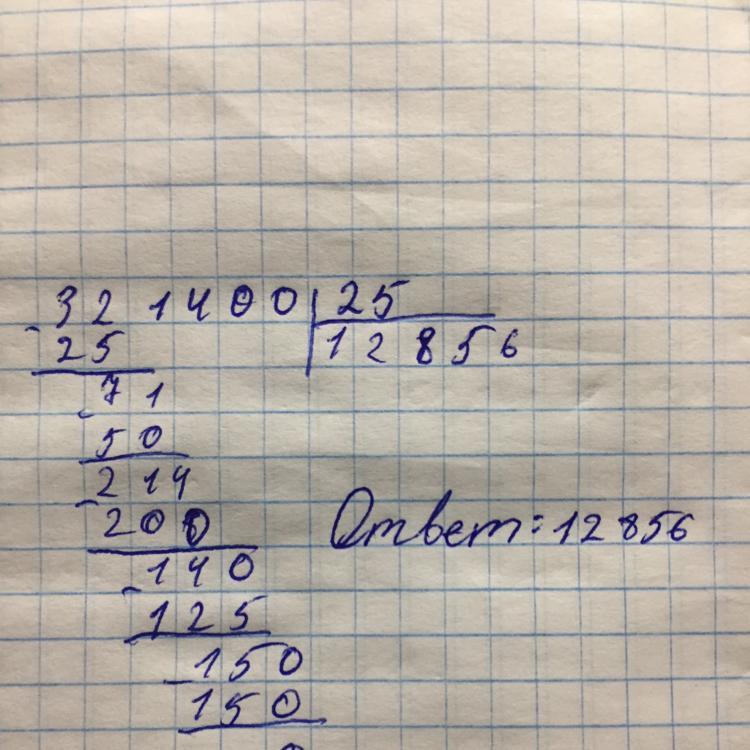 321400 25
- 25 12856
71
- 50
214
- 200
Ответ: 12856
140
- 125
150
- 150
0